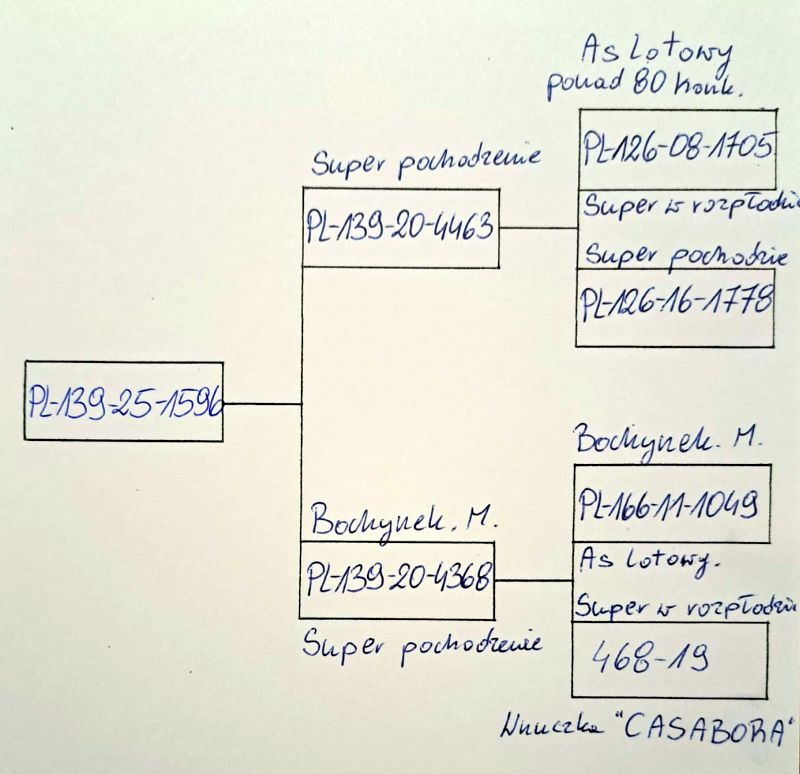 As Lotowy
ponad 80 konk.
PL-126-08-1705
Super pochodzenie
PL-139-20-4463
Super w rozpłodzie
Super pochodzie
PL-126-16-1778
PL-139-25-1596
Bochynek. M.
PL-166-11-1049
Bochynek. M.
PL-139-20-4368
As Lotowy.
Super w rozpłodzie
Super pochodzenie
468-19
Wnuczka "CASABORA"